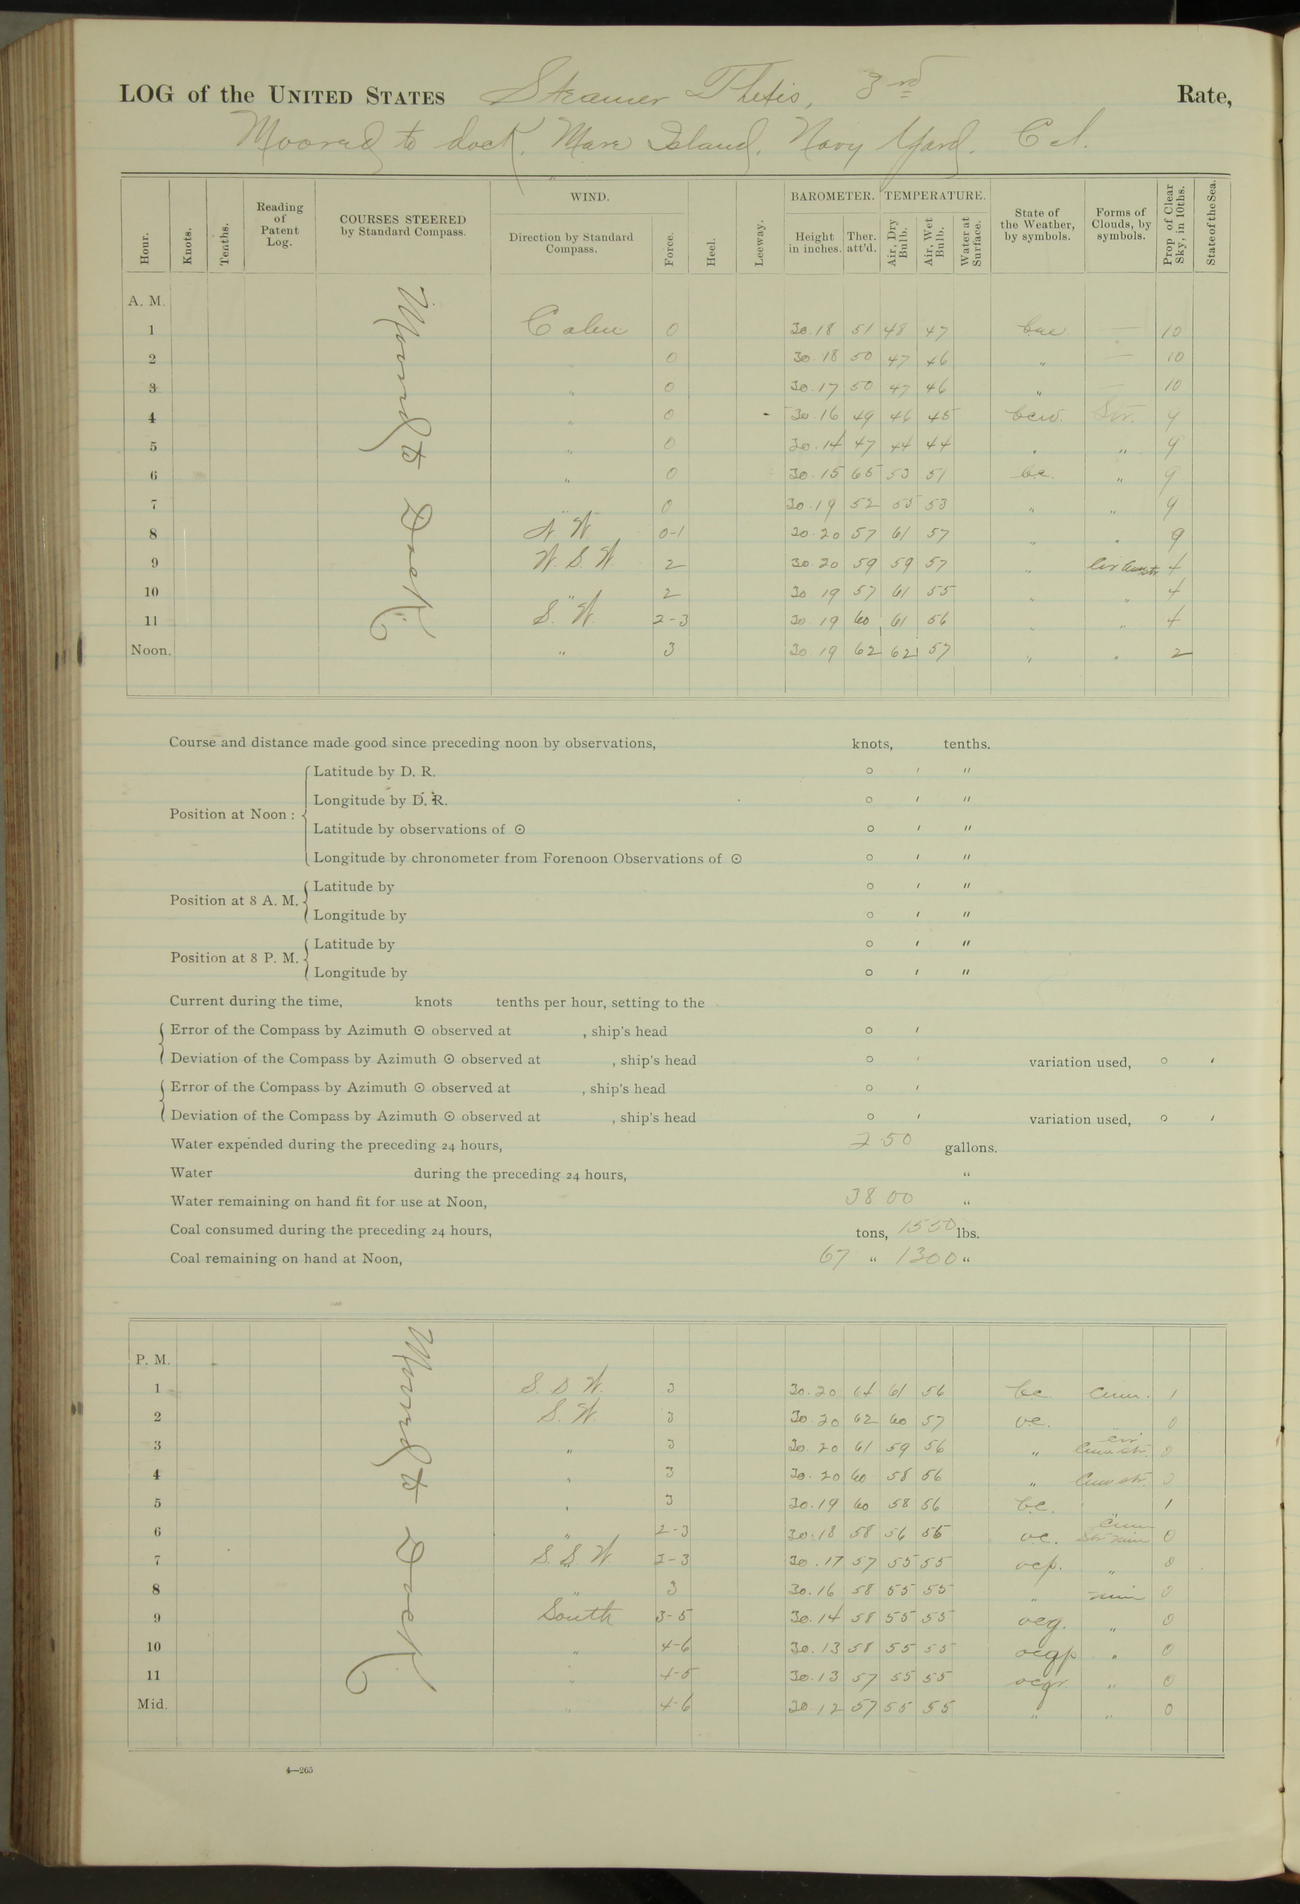 LOG of the UNITED STATES Steamer Thetis, 3rd Rate,
Moored to dock. Mare Island, Navy Yard, Cal.
Hour. Knots. Tenths. Reading of Patent Log. COURSES STEERED by Standard Compass. WIND. Direction by Standard Compass. Force. Heel. Leeway. BAROMETER. Height in inches. Ther. att'd. TEMPERATURE. Air, Dry Bulb. Air, Wet Bulb. Water at Surface. State of the Weather, by symbols. Forms of Clouds, by symbols. Prop. of Clear Sky, in 10ths. State of the Sea.
A. M.
Moored to Dock
1 Calm 0 30.18 51 48 47 — 10
2 0 30.18 50 47 46 " — 10
3 " 0 30.17 50 47 46 " — 10
4 " 0 30.16 49 46 45 bcw. Str. 9
5 " 0 30.14 47 44 44 " " 9
6 " 0 30.15 65 53 51 bc. " 9
7 " 0 30.19 52 55 53 " " 9
8 N W 0-1 30.20 57 61 57 " " 9
9 W. S. W 2 30.20 59 59 57 " 4
10 " 2 30 19 57 61 55 " " 4
11 S. W. 2-3 30 19 60 61 56 " " 4
Noon. " 3 30 19 62 62 57 " " 2
Course and distance made good since preceding noon by observations, knots, tenths.
Position at Noon: Latitude by D. R. ° ′ ″
Longitude by D. R. ° ′ ″
Latitude by observations of ☉ ° ′ ″
Longitude by chronometer from Forenoon Observations of ☉ ° ′ ″
Position at 8 A. M. Latitude by ° ′ ″
Longitude by ° ′ ″
Position at 8 P. M. Latitude by ° ′ ″
Longitude by ° ′ ″
Current during the time, knots tenths per hour, setting to the
Error of the Compass by Azimuth ☉ observed at , ship's head ° ′
Deviation of the Compass by Azimuth ☉ observed at , ship's head ° ′ variation used, ° ′
Error of the Compass by Azimuth ☉ observed at , ship's head ° ′
Deviation of the Compass by Azimuth ☉ observed at , ship's head ° ′ variation used, ° ′
Water expended during the preceding 24 hours, 250 gallons.
Water during the preceding 24 hours, "
Water remaining on hand fit for use at Noon, 3800 "
Coal consumed during the preceding 24 hours, tons, 1550 lbs.
Coal remaining on hand at Noon, 67 " 1300 "
P. M.
Moored to Dock
1 S. S. W. 3 30.20 64 61 56 bc. Cum. 1
2 S. W. 3 30.20 62 60 57 oc. 0
3 " 3 30.20 61 59 56 " cir Cum str. 0
4 " 3 30.20 60 58 56 " Cum str. 0
5 " 3 30.19 60 58 56 bc. 1
6 " 2-3 30.18 58 56 55 oc. Cum 0
7 S. S. W 2-3 30.17 57 55 55 ocp. " 0
8 " 3 30.16 58 55 55 " nim 0
9 South 3-5 30.14 58 55 55 ocq. " 0
10 " 4-6 30.13 58 55 55 ocqp " 0
11 " 4-5 30.13 57 55 55 ocqr. " 0
Mid. " 4-6 30.12 57 55 55 " " 0
4—265